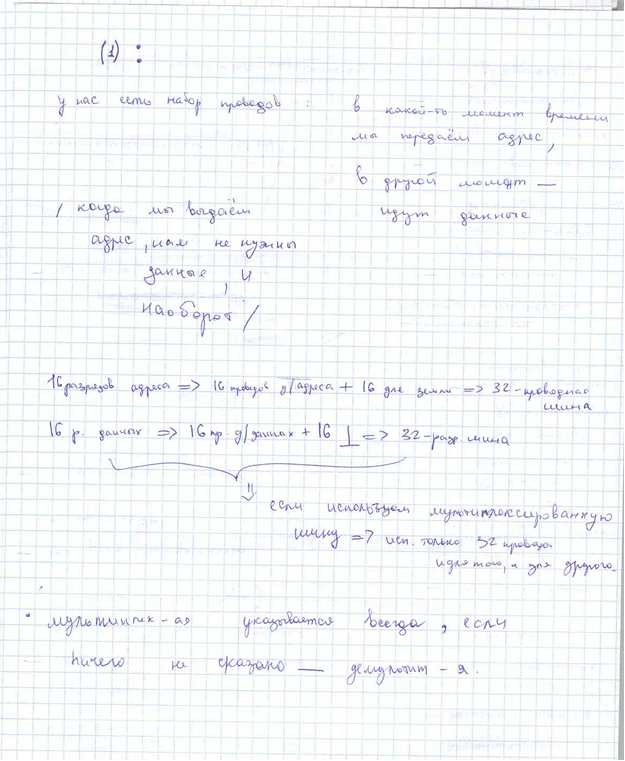 (1) :
у нас есть набор проводов :
в какой-то момент времени
мы передаём адрес,
в другой момент —
идут данные
/ когда мы выдаём
адрес, нам не нужны
данные, и
наоборот /
16 разрядов адреса => 16 проводов д/адреса + 16 для земли => 32-проводная
шина
16 р. данных => 16 пр. д/данных + 16 ⊥ => 32-разр. шина
⇓ если используем мультиплексированную
шину => исп. только 32 провода
и для того, и для другого.
• мультиплек-ая указывается всегда, если
ничего не сказано — демультип-я.